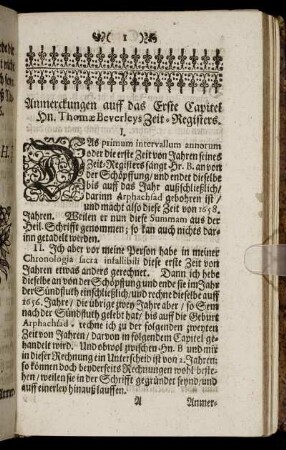 ( 1 )
Anmerckungen auff das Erste Capitel
Hn. Thomæ Beverleys Zeit-Registers.
I.
DAs primum intervallum annorum
oder die erste Zeit von Jahren seines
Zeit-Registers fängt Hr. B. an von
der Schöpffung/ und endet dieselbe
biß auff das Jahr außschließlich/
darinn Arphachsad gebohren ist/
und macht also diese Zeit von 1658.
Jahren. Weilen er nun diese Summam aus der
Heil. Schrifft genommen; so kan auch nichts da-
rinn getadelt werden.
II. Ich aber vor meine Person habe in meiner
Chronologia sacra infallibili diese erste Zeit von
Jahren etwas anders gerechnet. Dann ich hebe
dieselbe an von der Schöpffung und ende sie im Jahr
der Sündfluth einschließlich/ und rechne dieselbe auff
1656. Jahre/ die übrige zwey Jahre aber/ so Sem
nach der Sündfluth gelebt hat/ biß auff die Geburt
Arphachsad, rechne ich zu der folgenden zweyten
Zeit von Jahren/ davon in folgendem Capitel ge-
handelt wird. Und obwol zwischen Hn. B und mir
in dieser Rechnung ein Unterscheid ist von 2. Jahren:
so können doch beyderseits Rechnungen wohl beste-
hen/ weilen sie in der Schrifft gegründet seynd/ und
auff einerley hinauß lauffen.
A Anmer-